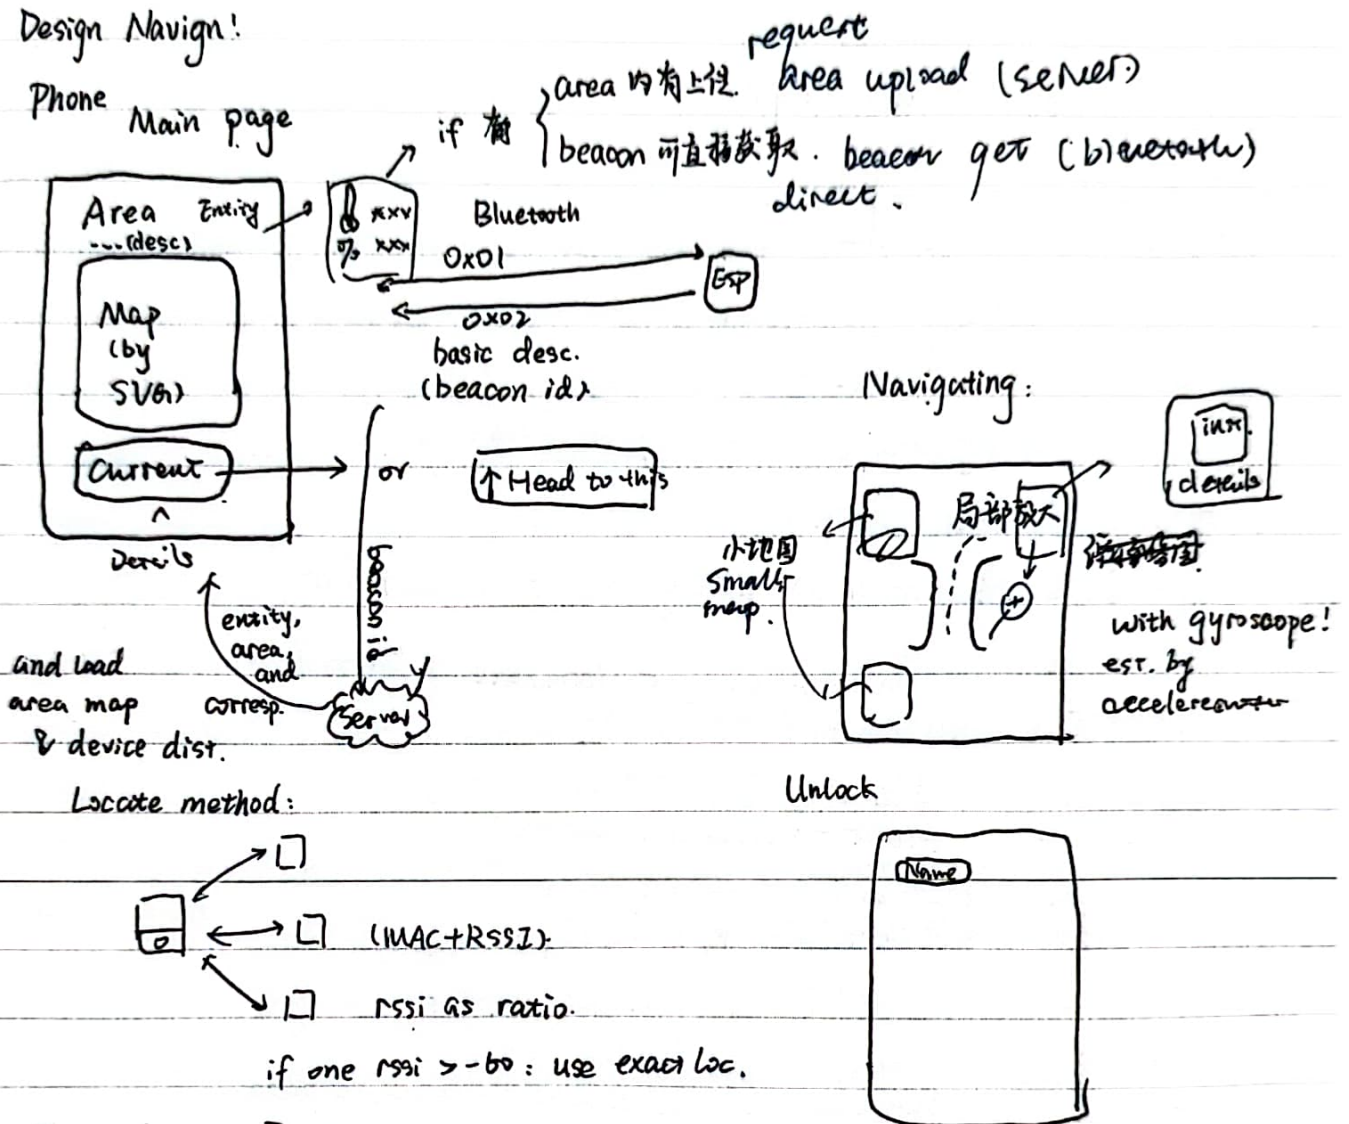 Design Navign!
Phone
Main page
if 有
area 内有上传. request area upload (server)
beacon 可直接获取. beacon get (bluetooth) direct.
Area Entity
----(desc)
Map
(by
SVG)
Current
Details
xxx
% xxx
Bluetooth
0x01
ESP
0x02
basic desc.
(beacon id)
or
↑ Head to this
beacon id
entity,
area,
and
corresp.
Server
and load
area map
& device dist.
Navigating:
局部放大
小地图
Small
map.
inst.
details
with gyroscope!
est. by
accelerometer
Locate method:
(MAC+RSSI).
rssi as ratio.
if one rssi >-60: use exact loc.
Unlock
Name